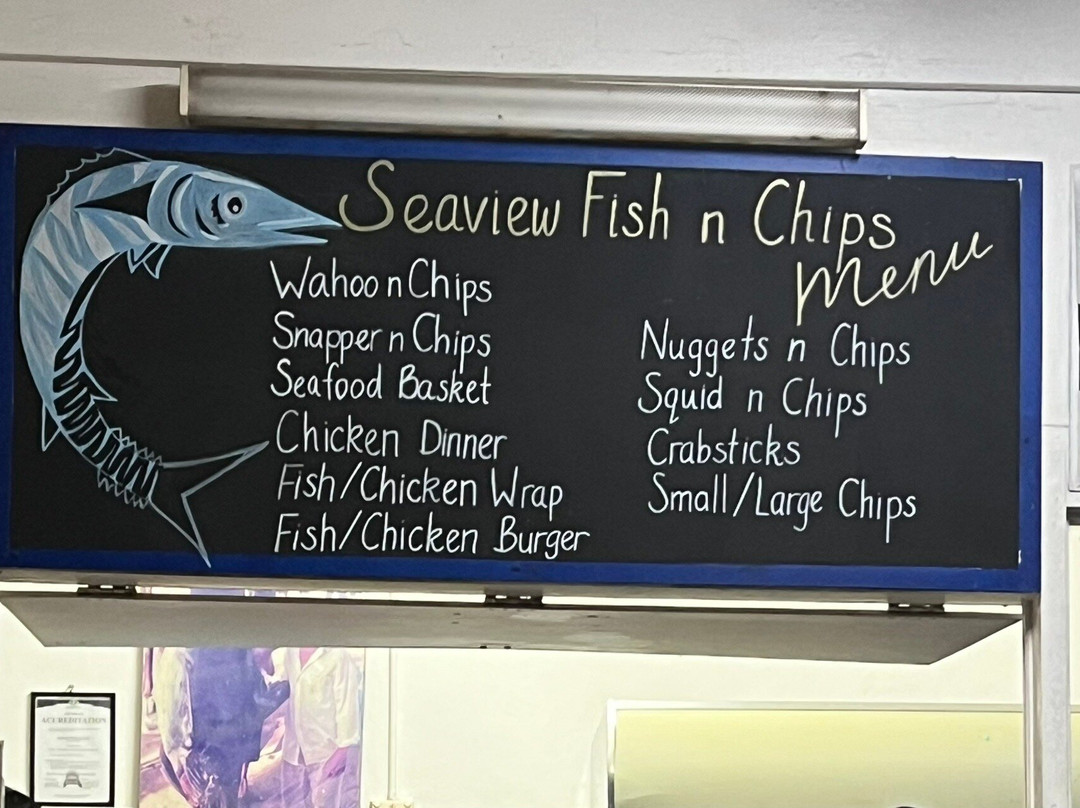 Seaview Fish n Chips
Menu
Wahoo n Chips
Snapper n Chips
Seafood Basket
Chicken Dinner
Fish/Chicken Wrap
Fish/Chicken Burger
Nuggets n Chips
Squid n Chips
Crabsticks
Small/Large Chips